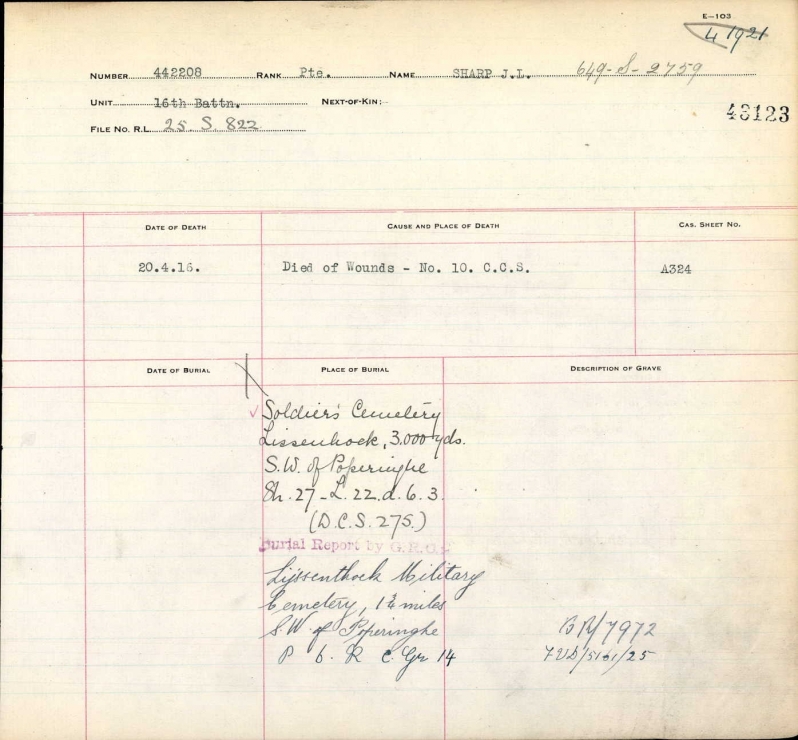 E—103
4 1921
NUMBER 442208 RANK Pte. NAME SHARP J.L. 649-S-2759
UNIT 16th Battn. NEXT-OF-KIN:
43123
FILE NO. R.L. 25. S. 822
DATE OF DEATH CAUSE AND PLACE OF DEATH CAS. SHEET NO.
20.4.16. Died of Wounds - No. 10. C.C.S. A324
DATE OF BURIAL PLACE OF BURIAL DESCRIPTION OF GRAVE
Soldier's Cemetery
Lissenhoek, 3,000 yds.
S.W. of Poperinghe
Sh. 27 - L. 22. d. 6. 3.
(D.C.S. 275.)
Burial Report by G.R.O.
Lijssenthoek Military
Cemetery, 1¾ miles
S.W. of Poperinghe BR/7972
P 6. R C. Gr 14